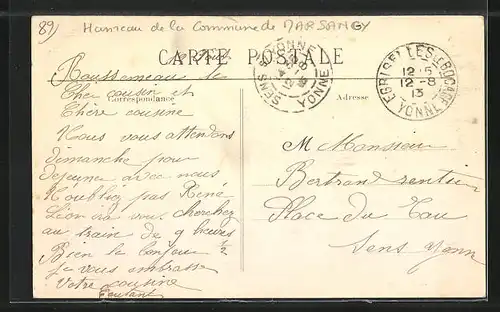 89) Hameau de la Commune de MARSANGY
CARTE POSTALE
Correspondance
Adresse
SENS YONNE
EGRISELLES-LE-BOCAGE YONNE
12-8
13
Roussemeau le
Cher cousin et
Chère cousine
Nous vous attendons
dimanche pour
dejeuner avec nous
N'oubliez pas René
Léon ira vous cherchez
au train de 9 heures ½
Bien le bonjour
je vous embrasse
Votre cousine
M Monsieur
Bertrand rentier
Place du Tau
Sens Yonne